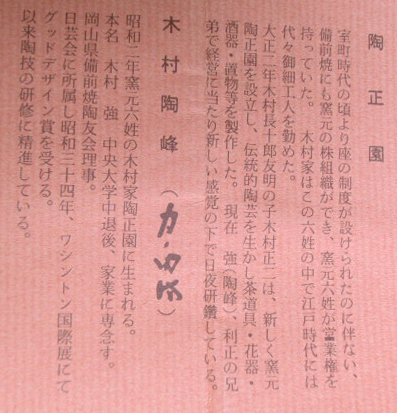 陶正園
室町時代の頃より座の制度が設けられたのに伴ない、
備前焼にも窯元の株組織ができ、窯元六姓が営業権を
持っていた。木村家はこの六姓の中で江戸時代には
代々御細工人を勤めた。
大正二年木村長十郎友明の子木村正二は、新しく窯元
陶正園を設立し、伝統的陶芸を生かし茶道具・花器・
酒器・置物等を製作した。現在 強(陶峰)、利正の兄
弟で経営に当たり新しい感覚の下で日夜研鑽している。
木村陶峰(
)
昭和二年窯元六姓の木村家陶正園に生まれる。
本名 木村 強 中央大学中退後、家業に専念す。
岡山県備前焼陶友会理事。
日芸会に所属し昭和三十四年、ワシントン国際展にて
グッドデザイン賞を受ける。
以来陶技の研修に精進している。